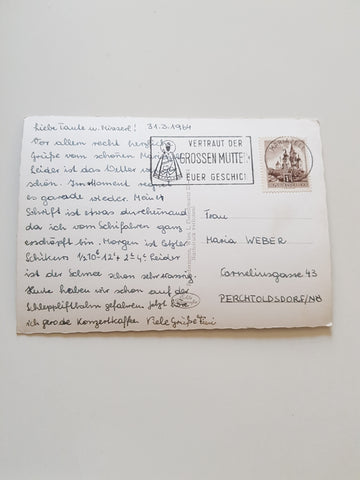 Liebe Tante u. Misserl! 31.3.1964
Vor allem recht herzliche
Grüße vom schönen
Leider ist das Wetter
schön. Im Moment regnet
es gerade wieder. Meine
Schrift ist etwas durcheinand
da ich vom Schifahren ganz
erschöpft bin. Morgen ist letzter
Schikurs Leider
ist der Schnee schon sehr
Heute haben wir schon auf der
Schleppliftbahn gefahren jetzt
ich gerade Konzertkaffee. Viele Grüße
VERTRAUT DER
GROSSEN MUTTER
EUER GESCHICK!
Frau
Maria WEBER
Corneliusgasse 43
PERCHTOLDSDORF/NÖ